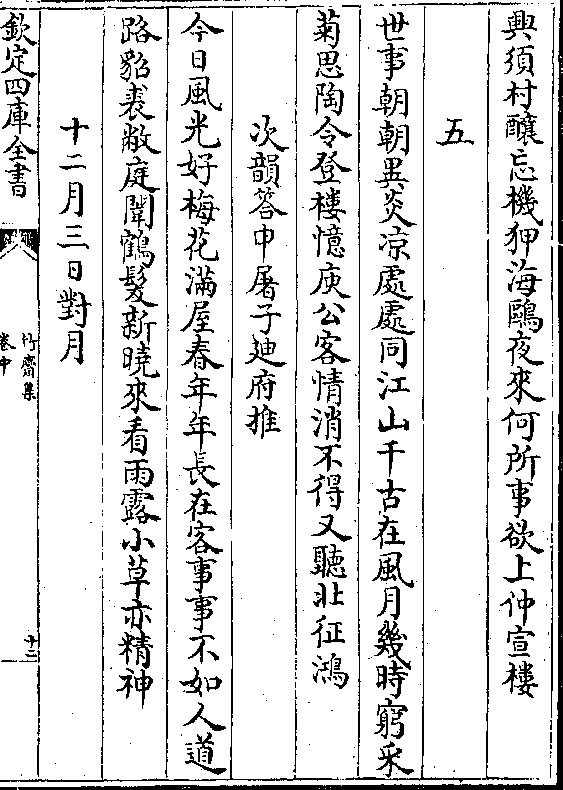 興須村釀忘機狎海鷗夜來何所事欲上仲宣樓
五
世事朝朝異炎凉處處同江山千古在風月幾時窮采
菊思陶令登樓憶庾公客情消不得又聽北征鴻
次韻答申屠子廸府推
今日風光好梅花滿屋春年年長在客事事不如人道
路貂裘敝庭闈鶴髮新曉來看雨露小草亦精神
十二月三日對月
欽定四庫全書
竹齋集
卷中
十三